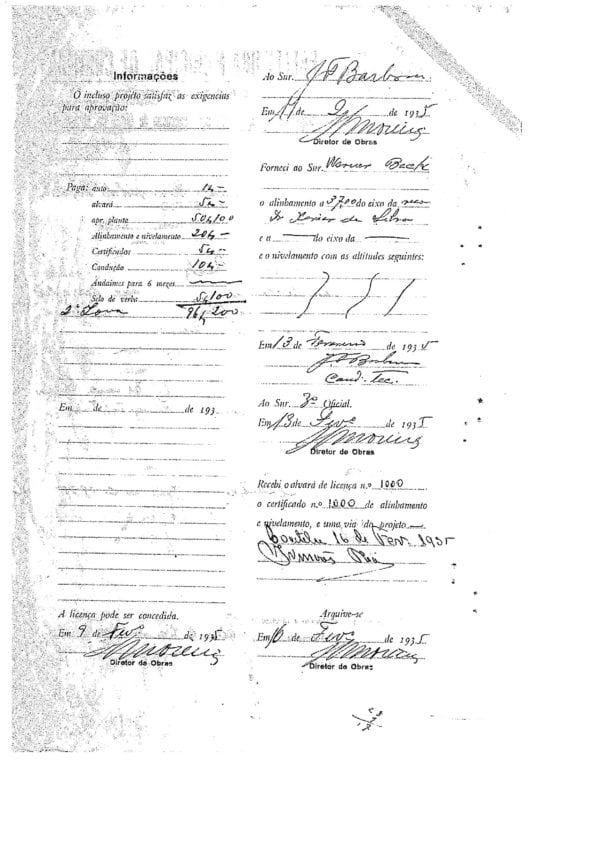 Informações
O incluso projeto satisfaz as exigencias
para aprovação:
Paga: auto 1$-
alvará 5$-
apr. planta 50$100
Alinhamento e nivelamento 20$-
Certificados 5$-
Condução 10$-
Andaimes para 6 mezes
Selo de verba 5$100
96$200
Em de de 193
A licença pode ser concedida.
Em 9 de Fevº de 1935
Diretor de Obras
Ao Snr. J P Barbosa
Em 11 de 2 de 1935
Diretor de Obras
Forneci ao Snr. Werner Beck
o alinhamento a 3,700 do eixo da
da Silva
e a do eixo da
e o nivelamento com as altitudes seguintes:
Em 13 de Fevereiro de 1935
Cand. Tec.
Ao Snr. 3º Oficial.
Em 13 de Fevº de 1935
Diretor de Obras
Recebi o alvará de licença n.º 1000
o certificado n.º 1000 de alinhamento
e nivelamento, e uma via do projeto
16 de Fev. 1935
Arquive-se
Em 16 de Fevº de 1935
Diretor de Obras